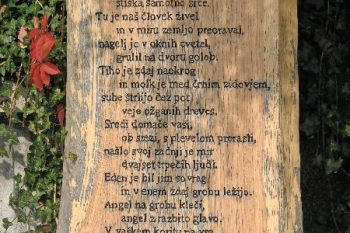 stiska samotno srce.
Tu je naš človek živel
in v miru zemljo preoraval,
nagelj je v oknih cvetel,
grulil na dvoru golob.
Tiho je zdaj naokrog
in molk je med črnim zidovjem,
suhe štrlijo čez pot
veje ožganih dreves.
Sredi domače vasi,
ob stezi, s plevelom prerasti,
našlo svoj zadnji je mir
dvajset trpečih ljudi.
Eden je bil jim sovrag
in v enem zdaj grobu ležijo.
Angel na grobu kleči,
angel z razbito glavo.
V vaškem koritu na